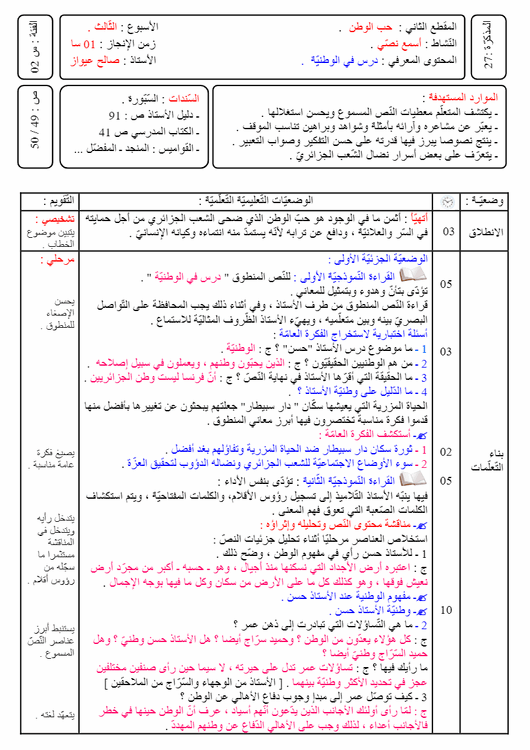 المذكرة :27
المقطع الثاني : حب الوطن .
النّشاط : أسمع نصّي .
المحتوى المعرفي : درس في الوطنيّة .
الأسبوع : الثّالث .
زمن الإنجاز : 01 سا
الأستاذ : صالح عيواز
الفئة : س 02
الموارد المستهدفة :
ـ يكتشف المتعلّم معطيات النّص المسموع ويحسن استغلالها .
ـ يعبّر عن مشاعره وآرائه بأمثلة وشواهد وبراهين تناسب الموقف .
ـ ينتج نصوصا يبرز فيها قدرته على حسن التفكير وصواب التعبير .
ـ يتعرّف على بعض أسرار نضال الشّعب الجزائريّ .
السّندات : السّبّورة .
ـ دليل الأستاذ ص : 91
ـ الكتاب المدرسي ص 41
ـ القواميس : المنجد ـ المفضّل ...
ص : 49 / 50
وضعيّة :
الوضعيّات التّعليميّة التّعلّميّة :
التّقويم :
الانطلاق
03
أتهيّأ : أثمن ما في الوجود هو حبّ الوطن الذي ضحى الشعب الجزائري من أجل حمايته
في السّر والعلانيّة ، ودافع عن ترابه لأنّه يستمدّ منه انتماءه وكيانه الإنسانيّ .
تشخيصي :
يتبين موضوع
الخطاب .
بناء
التّعلّمات
الوضعيّة الجزئيّة الأولى :
مرحلي :
05
القراءة النّموذجيّة الأولى : للنّص المنطوق " درس في الوطنيّة " .
تؤدّى بتأنّ وهدوء وبتمثيل للمعاني .
قراءة النّص المنطوق من طرف الأستاذ ، وفي أثناء ذلك يجب المحافظة على التّواصل
البصريّ بينه وبين متعلّميه ، ويهيّء الأستاذ الظّروف المثاليّة للاستماع .
يحسن
الإصغاء
للمنطوق .
أسئلة اختبارية لاستخراج الفكرة العامّة :
03
1 - ما موضوع درس الأستاذ "حسن" ؟ ج : الوطنيّة .
2 - من هم الوطنيين الحقيقيّون ؟ ج : الذين يحبّون وطنهم ، ويعملون في سبيل إصلاحه .
3 - ما الحقيقة التي أقرّها الأستاذ في نهاية النّصّ ؟ ج : أنّ فرنسا ليست وطن الجزائريين .
4 - ما الدّليل على وطنيّة الأستاذ ؟ .
الحياة المزرية التي يعيشها سكّان " دار سبيطار" جعلتهم يبحثون عن تغييرها بأفضل منها
قدموا فكرة مناسبة تختصرون فيها أبرز معاني المنطوق .
ـ أستكشف الفكرة العامّة :
02
1 - ثورة سكان دار سبيطار ضد الحياة المزرية وتفاؤلهم بغد أفضل .
2 - سوء الأوضاع الاجتماعيّة للشعب الجزائري ونضاله الدؤوب لتحقيق العزّة .
يصيغ فكرة
عامة مناسبة .
05
القراءة النّموذجيّة الثّانية : تؤدّى بنفس الأداء :
فيها ينبّه الأستاذ التّلاميذ إلى تسجيل رؤوس الأقلام، والكلمات المفتاحيّة ، ويتم استكشاف
الكلمات الصّعبة التي تعوق فهم المعنى .
ـ مناقشة محتوى النّص وتحليله وإثراؤه :
استخلاص العناصر مرحليّا أثناء تحليل جزئيات النصّ :
1 - للأستاذ حسن رأي في مفهوم الوطن ، وضّح ذلك .
ج : اعتبره أرض الأجداد التي نسكنها منذ أجيال ، وهو - حسبه - أكبر من مجرّد أرض
نعيش فوقها ، وهو كذلك كل ما على الأرض من سكان وكل ما فيها بوجه الإجمال .
يتدخل رأيه
ويتدخل في
المناقشة
مستثمرا ما
سجّله من
رؤوس أقلام .
ـ مفهوم الوطنية عند الأستاذ حسن .
ـ وطنيّة الأستاذ حسن .
10
2 - ما هي التّساؤلات التي تبادرت إلى ذهن عمر ؟
ج : كل هؤلاء يعدّون من الوطن ؟ وحميد سرّاج أيضا ؟ هل الأستاذ حسن وطنيّ ؟ وهل
حميد السّرّاج وطنيّ أيضا ؟
ما رأيك فيها ؟ ج : تساؤلات عمر تدل على حيرته ، لا سيما حين رأى صنفين مختلفين
عجز في تحديد الأكثر وطنيّة بينهما . [ الأستاذ من الوجهاء والسّرّاج من الملاحقين ]
يستنبط أبرز
عناصر النّصّ
المسموع .
3 - كيف توصّل عمر إلى مبدإ وجوب دفاع الأهالي عن الوطن ؟
ج : لمّا رأى أولئك الأجانب الذين يدّعون أنّهم أسياد ، عرف أنّ الوطن حينها في خطر
فالأجانب أعداء ، لذلك وجب على الأهالي الدّفاع عن وطنهم المهددّ .
يتعهّد لغته .